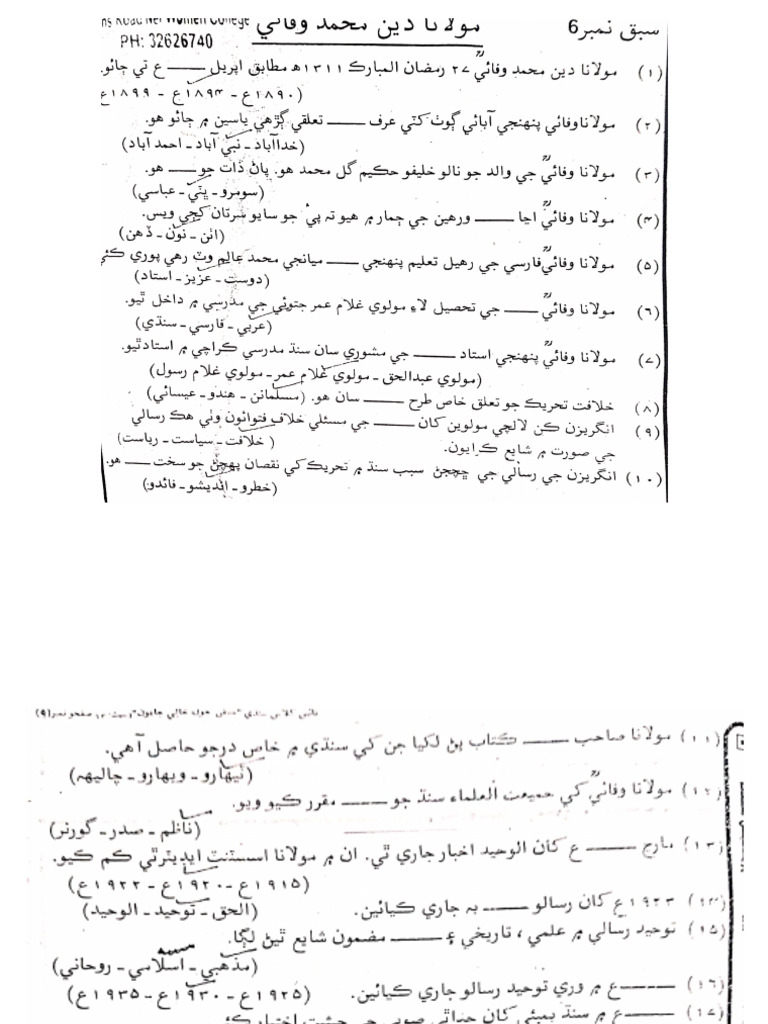 سبق نمبر6 مولانا دين محمد وفائيؒ ns Road Nei Women College
PH: 32626740
(۱) مولانا دين محمد وفائيؒ ۲۷ رمضان المبارڪ ۱۳۱۱ھ مطابق اپريل ـــــ ع تي ڄائو.
(۱۸۹۰ع - ۱۸۹۴ع - ۱۸۹۹ع
(۲) مولاناوفائي پنهنجي اَبائي ڳوٺ کٽي عرف ـــــ تعلقي ڳڙهي ياسين ۾ ڄائو هو.
(خداآباد - نبي آباد - احمد آباد)
(۳) مولانا وفائيؒ جي والد جو نالو خليفو حڪيم گل محمد هو. پاڻ ذات جو ـــــ هو.
(سومرو - ڀٽي - عباسي)
(۴) مولانا وفائيؒ اڃا ـــــ ورهين جي ڄمار ۾ هيو ته پيءُ جو سايو سرتان کڄي ويس.
(اٺن - نون - ڏهن)
(۵) مولانا وفائيؒ فارسي جي رهيل تعليم پنهنجي ـــــ ميانجي محمد عالم وٽ رهي پوري ڪئي
(دوست - عزيز - استاد)
(۶) مولانا وفائيؒ ـــــ جي تحصيل لاءِ مولوي غلام عمر جتوئي جي مدرسي ۾ داخل ٿيو.
(عربي - فارسي - سنڌي)
(۷) مولانا وفائيؒ پنهنجي استاد ـــــ جي مشوري سان سنڌ مدرسي ڪراچي ۾ استاد ٿيو.
(مولوي عبدالحق - مولوي غلام عمر - مولوي غلام رسول)
(۸) خلافت تحريڪ جو تعلق خاص طرح ـــــ سان هو. (مسلمانن - هندو - عيسائي)
(۹) انگريزن ڪن لالچي مولوين کان ـــــ جي مسئلي خلاف فتوائون وٺي هڪ رسالي
جي صورت ۾ شايع ڪرايون. (خلافت - سياست - رياست)
(۱۰) انگريزن جي رسالي جي ڇپجڻ سبب سنڌ ۾ تحريڪ کي نقصان پهچڻ جو سخت ـــــ هو.
(خطرو - انديشو - فائدو)
(۱۱) مولانا صاحب ـــــ ڪتاب پڻ لکيا جن کي سنڌي ۾ خاص درجو حاصل آهي.
(ٽيهارو - ويهارو - چاليهه)
(۱۲) مولانا وفائيؒ کي جميعت العلماء سنڌ جو ـــــ مقرر ڪيو ويو.
(ناظم - صدر - گورنر)
(۱۳) مارچ ـــــ ع کان الوحيد اخبار جاري ٿي. ان ۾ مولانا اسسٽنٽ ايڊيٽرٿي ڪم ڪيو.
(۱۹۱۵ع - ۱۹۲۰ع - ۱۹۲۲ع)
(۱۴) ۱۹۲۳ع کان رسالو ـــــ به جاري ڪيائين. (الحق - توحيد - الوحيد)
(۱۵) توحيد رسالي ۾ علمي، تاريخي ۽ ـــــ مضمون شايع ٿيڻ لڳا.
(مذهبي - اسلامي - روحاني)
(۱۶) ـــــ ع ۾ وري توحيد رسالو جاري ڪيائين. (۱۹۲۵ع - ۱۹۳۰ع - ۱۹۳۵ع)
(۱۷) ـــــ ع ۾ سنڌ بمبئي کان جدا ٿي صوبي جي حيثيت اختيار ڪئي